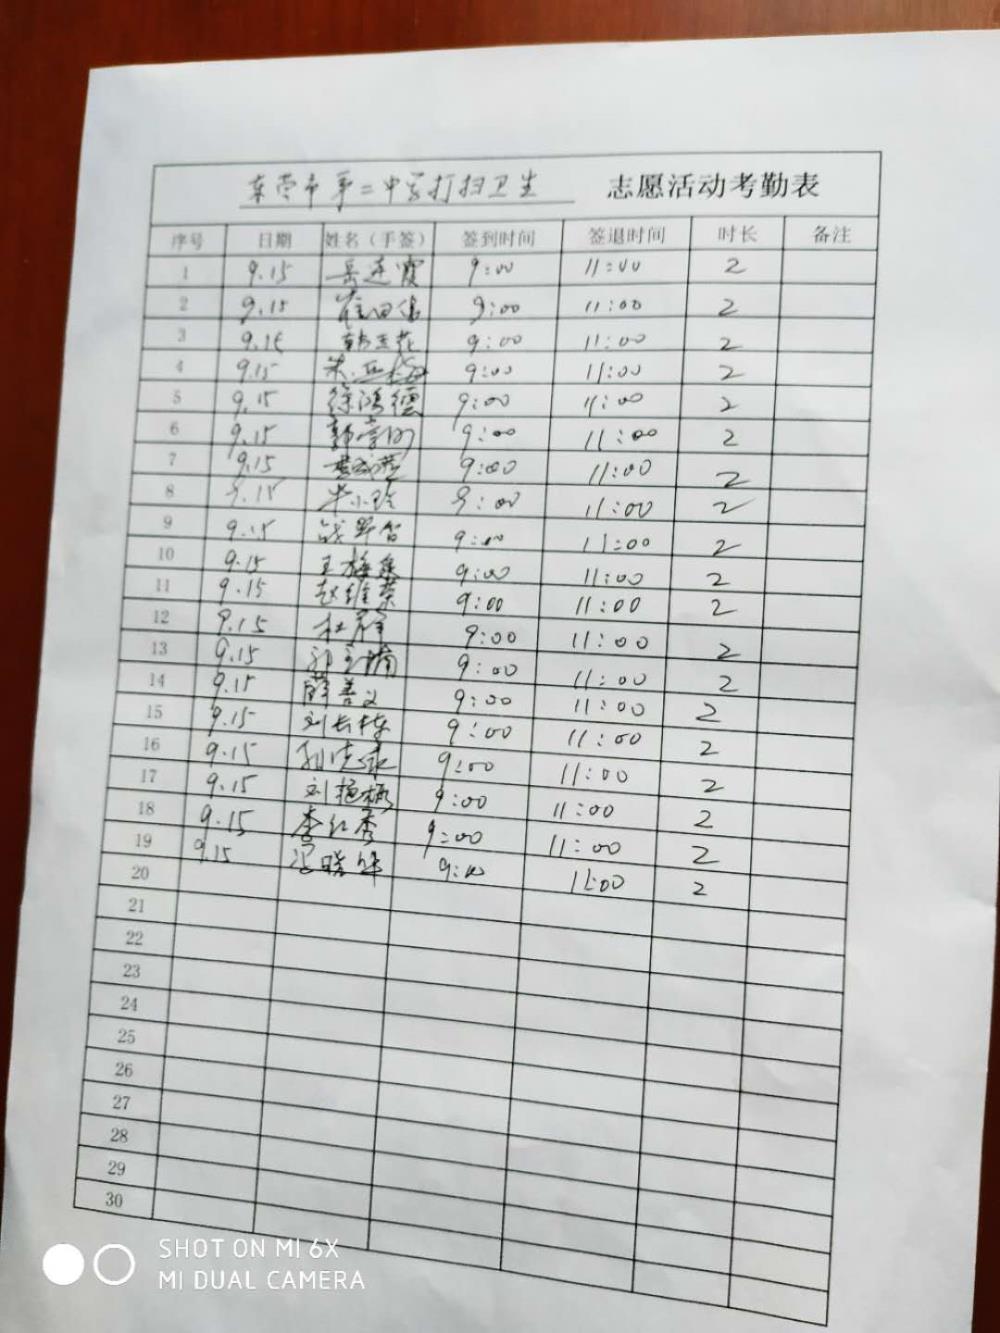 东营市第二中学打扫卫生 志愿活动考勤表
序号 日期 姓名（手签） 签到时间 签退时间 时长 备注
1 9.15 岳连霞 9:00 11:00 2
2 9.15 9:00 11:00 2
3 9.15 9:00 11:00 2
4 9.15 9:00 11:00 2
5 9.15 徐鸿德 9:00 11:00 2
6 9.15 9:00 11:00 2
7 9.15 9:00 11:00 2
8 9.15 毕小玲 9:00 11:00 2
9 9.15 9:00 11:00 2
10 9.15 9:00 11:00 2
11 9.15 赵维荣 9:00 11:00 2
12 9.15 9:00 11:00 2
13 9.15 9:00 11:00 2
14 9.15 薛善义 9:00 11:00 2
15 9.15 刘长栋 9:00 11:00 2
16 9.15 9:00 11:00 2
17 9.15 刘艳梅 9:00 11:00 2
18 9.15 李红秀 9:00 11:00 2
19 9.15 冯晓华 9:00 11:00 2
20
21
22
23
24
25
26
27
28
29
30
SHOT ON MI 6X
MI DUAL CAMERA